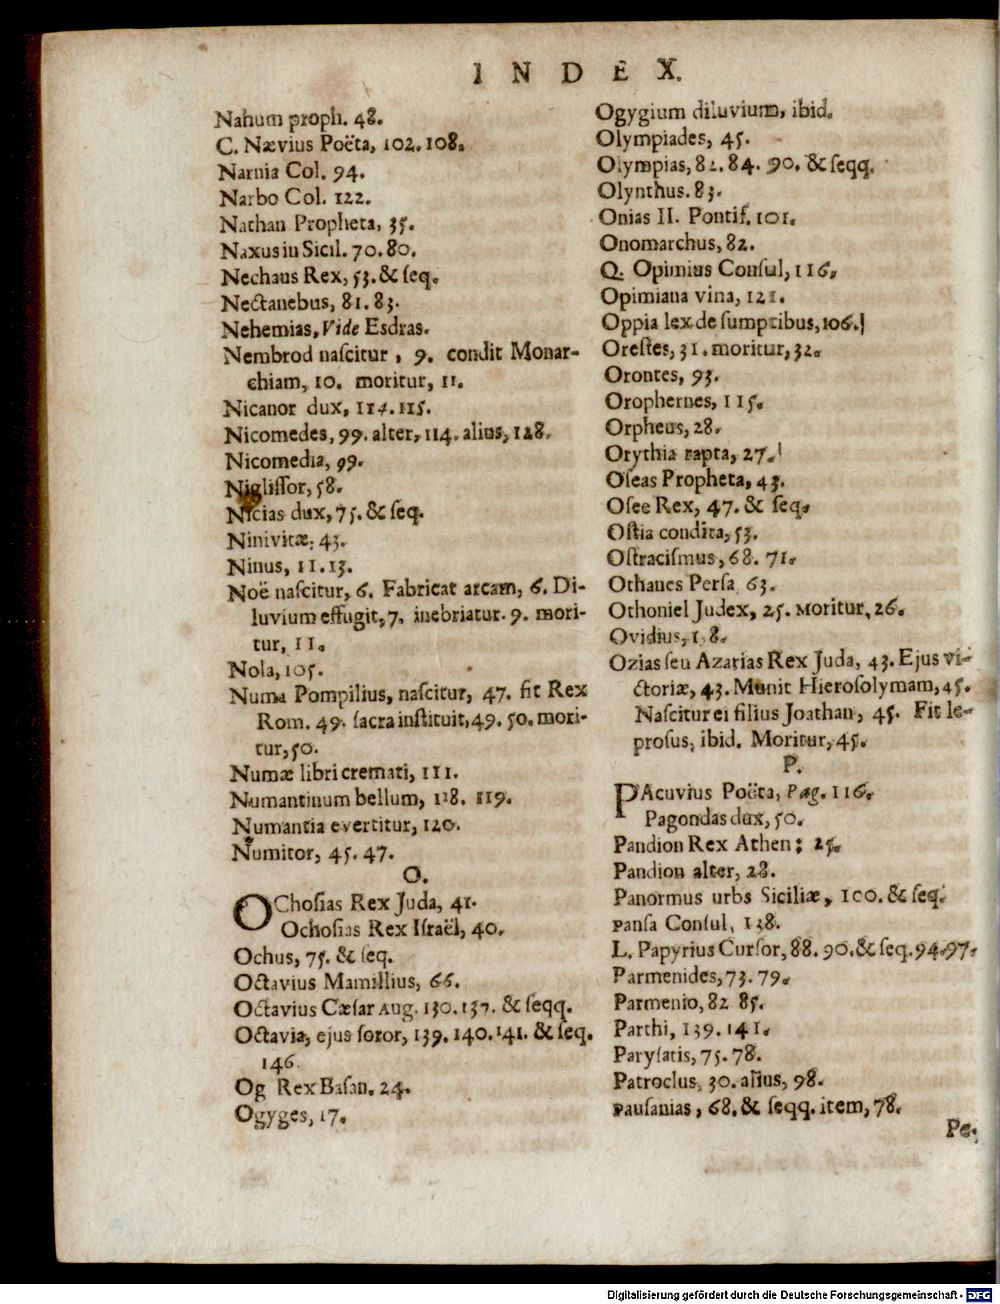 INDEX.
Nahum proph. 48.
C. Nævius Poëta, 102. 108.
Narnia Col. 94.
Narbo Col. 122.
Nathan Propheta, 35.
Naxus in Sicil. 70. 80.
Nechaus Rex, 53. & ſeq.
Nectanebus, 81. 83.
Nehemias, Vide Esdras.
Nembrod naſcitur, 9. condit Monar-
chiam, 10. moritur, 11.
Nicanor dux, 114. 115.
Nicomedes, 99. alter, 114. alius, 128.
Nicomedia, 99.
Nigliſſor, 58.
Nicias dux, 75. & ſeq.
Ninivitæ. 43.
Ninus, 11. 13.
Noë naſcitur, 6. Fabricat arcam, 6. Di-
luvium effugit, 7. inebriatur. 9. mori-
tur, 11.
Nola, 105.
Numa Pompilius, naſcitur, 47. fit Rex
Rom. 49. ſacra inſtituit, 49. 50. mori-
tur, 50.
Numæ libri cremati, 111.
Numantinum bellum, 118. 119.
Numantia evertitur, 120.
Numitor, 45. 47.
O.
OChoſias Rex Juda, 41.
Ochoſias Rex Iſraël, 40.
Ochus, 75. & ſeq.
Octavius Mamillius, 66.
Octavius Cæſar Aug. 130. 137. & ſeqq.
Octavia, ejus ſoror, 139. 140. 141. & ſeq.
146.
Og Rex Baſan. 24.
Ogyges, 17.
Ogygium diluvium, ibid.
Olympiades, 45.
Olympias, 82. 84. 90. & ſeqq.
Olynthus. 83.
Onias II. Pontif. 101.
Onomarchus, 82.
Q. Opimius Conſul, 116.
Opimiana vina, 121.
Oppia lex de ſumptibus, 106.
Oreſtes, 31. moritur, 32.
Orontes, 93.
Orophernes, 115.
Orpheus, 28.
Orythia rapta, 27.
Oſeas Propheta, 43.
Oſee Rex, 47. & ſeq.
Oſtia condita, 53.
Oſtraciſmus, 68. 71.
Othanes Perſa, 63.
Othoniel Judex, 25. Moritur, 26.
Ovidius,
Ozias ſeu Azarias Rex Juda, 43. Ejus vi-
ctoriæ, 43. Munit Hieroſolymam, 45.
Naſcitur ei filius Joathan, 45. Fit le-
proſus, ibid. Moritur, 45.
P.
PAcuvius Poëta, Pag. 116.
Pagondas dux, 50.
Pandion Rex Athen: 25.
Pandion alter, 28.
Panormus urbs Siciliæ, 100. & ſeq.
Panſa Conſul, 138.
L. Papyrius Curſor, 88. 90. & ſeq. 94. 97.
Parmenides, 73. 79.
Parmenio, 82 85.
Parthi, 139. 141.
Paryſatis, 75. 78.
Patroclus, 30. alius, 98.
Pauſanias, 68. & ſeqq. item, 78.
Pe-
Digitalisierung gefördert durch die Deutsche Forschungsgemeinschaft - DFG